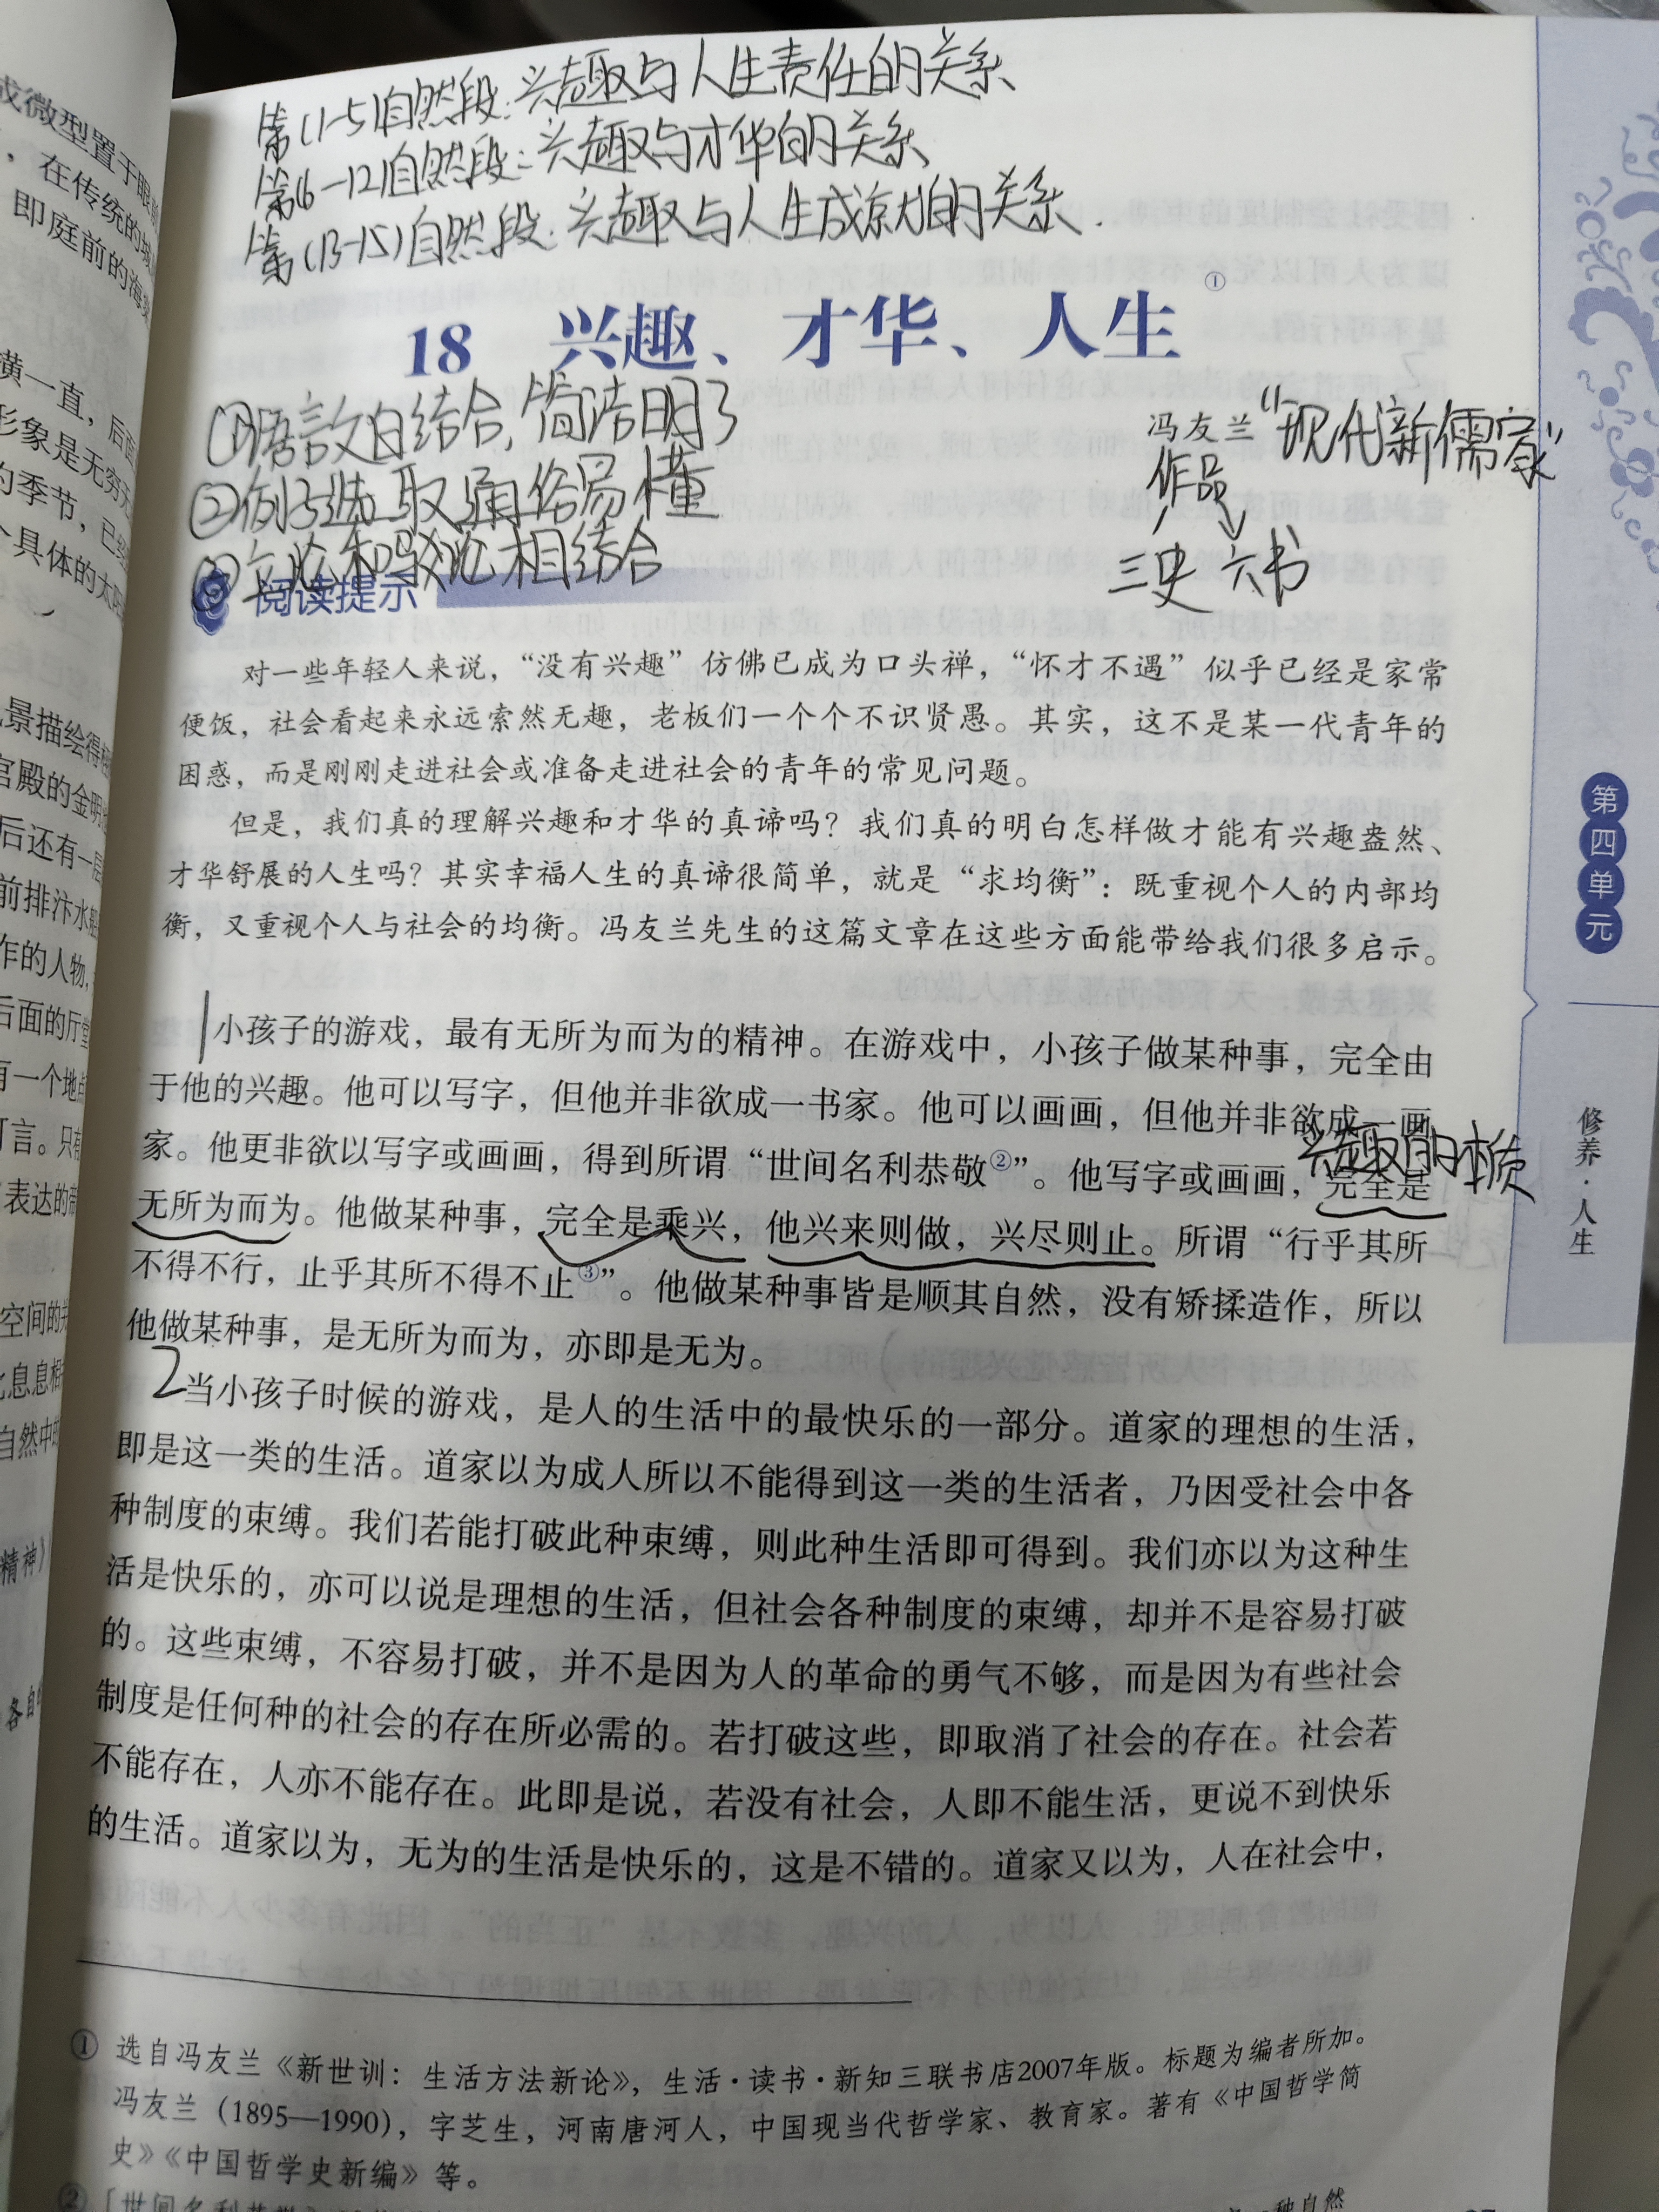 第(1-5)自然段:兴趣与人生责任的关系
第(6-12)自然段:兴趣与才华的关系
第(13-15)自然段:兴趣与人生成就的关系.
18 兴趣、才华、人生①
冯友兰“现代新儒家”
作品
三史 六书
①语言文白结合,简洁明了
②例子选取通俗易懂
③立论和驳论相结合
阅读提示
对一些年轻人来说，“没有兴趣”仿佛已成为口头禅，“怀才不遇”似乎已经是家常
便饭，社会看起来永远索然无趣，老板们一个个不识贤愚。其实，这不是某一代青年的
困惑，而是刚刚走进社会或准备走进社会的青年的常见问题。
但是，我们真的理解兴趣和才华的真谛吗？我们真的明白怎样做才能有兴趣盎然、
才华舒展的人生吗？其实幸福人生的真谛很简单，就是“求均衡”：既重视个人的内部均
衡，又重视个人与社会的均衡。冯友兰先生的这篇文章在这些方面能带给我们很多启示。
1小孩子的游戏，最有无所为而为的精神。在游戏中，小孩子做某种事，完全由
于他的兴趣。他可以写字，但他并非欲成一书家。他可以画画，但他并非欲成一画
家。他更非欲以写字或画画，得到所谓“世间名利恭敬②”。他写字或画画，完全是
兴趣的本质
无所为而为。他做某种事，完全是乘兴，他兴来则做，兴尽则止。所谓“行乎其所
不得不行，止乎其所不得不止③”。他做某种事皆是顺其自然，没有矫揉造作，所以
他做某种事，是无所为而为，亦即是无为。
2当小孩子时候的游戏，是人的生活中的最快乐的一部分。道家的理想的生活，
即是这一类的生活。道家以为成人所以不能得到这一类的生活者，乃因受社会中各
种制度的束缚。我们若能打破此种束缚，则此种生活即可得到。我们亦以为这种生
活是快乐的，亦可以说是理想的生活，但社会各种制度的束缚，却并不是容易打破
的。这些束缚，不容易打破，并不是因为人的革命的勇气不够，而是因为有些社会
制度是任何种的社会的存在所必需的。若打破这些，即取消了社会的存在。社会若
不能存在，人亦不能存在。此即是说，若没有社会，人即不能生活，更说不到快乐
的生活。道家以为，无为的生活是快乐的，这是不错的。道家又以为，人在社会中，
① 选自冯友兰《新世训：生活方法新论》，生活·读书·新知三联书店2007年版。标题为编者所加。
冯友兰（1895—1990），字芝生，河南唐河人，中国现当代哲学家、教育家。著有《中国哲学简
史》《中国哲学史新编》等。
② [世间名利恭敬]
种自然
第四单元
修养·人生
或微型置于眼前
，在传统的
即庭前的海棠
横一直，后面
形象是无穷
的季节，已经
个具体的太
景描绘得
宫殿的金明
后还有一层
前排汴水
作的人物，
后面的厅堂
有一个地
可言。只有
表达的
空间的
息息相
自然中
精神》
各自